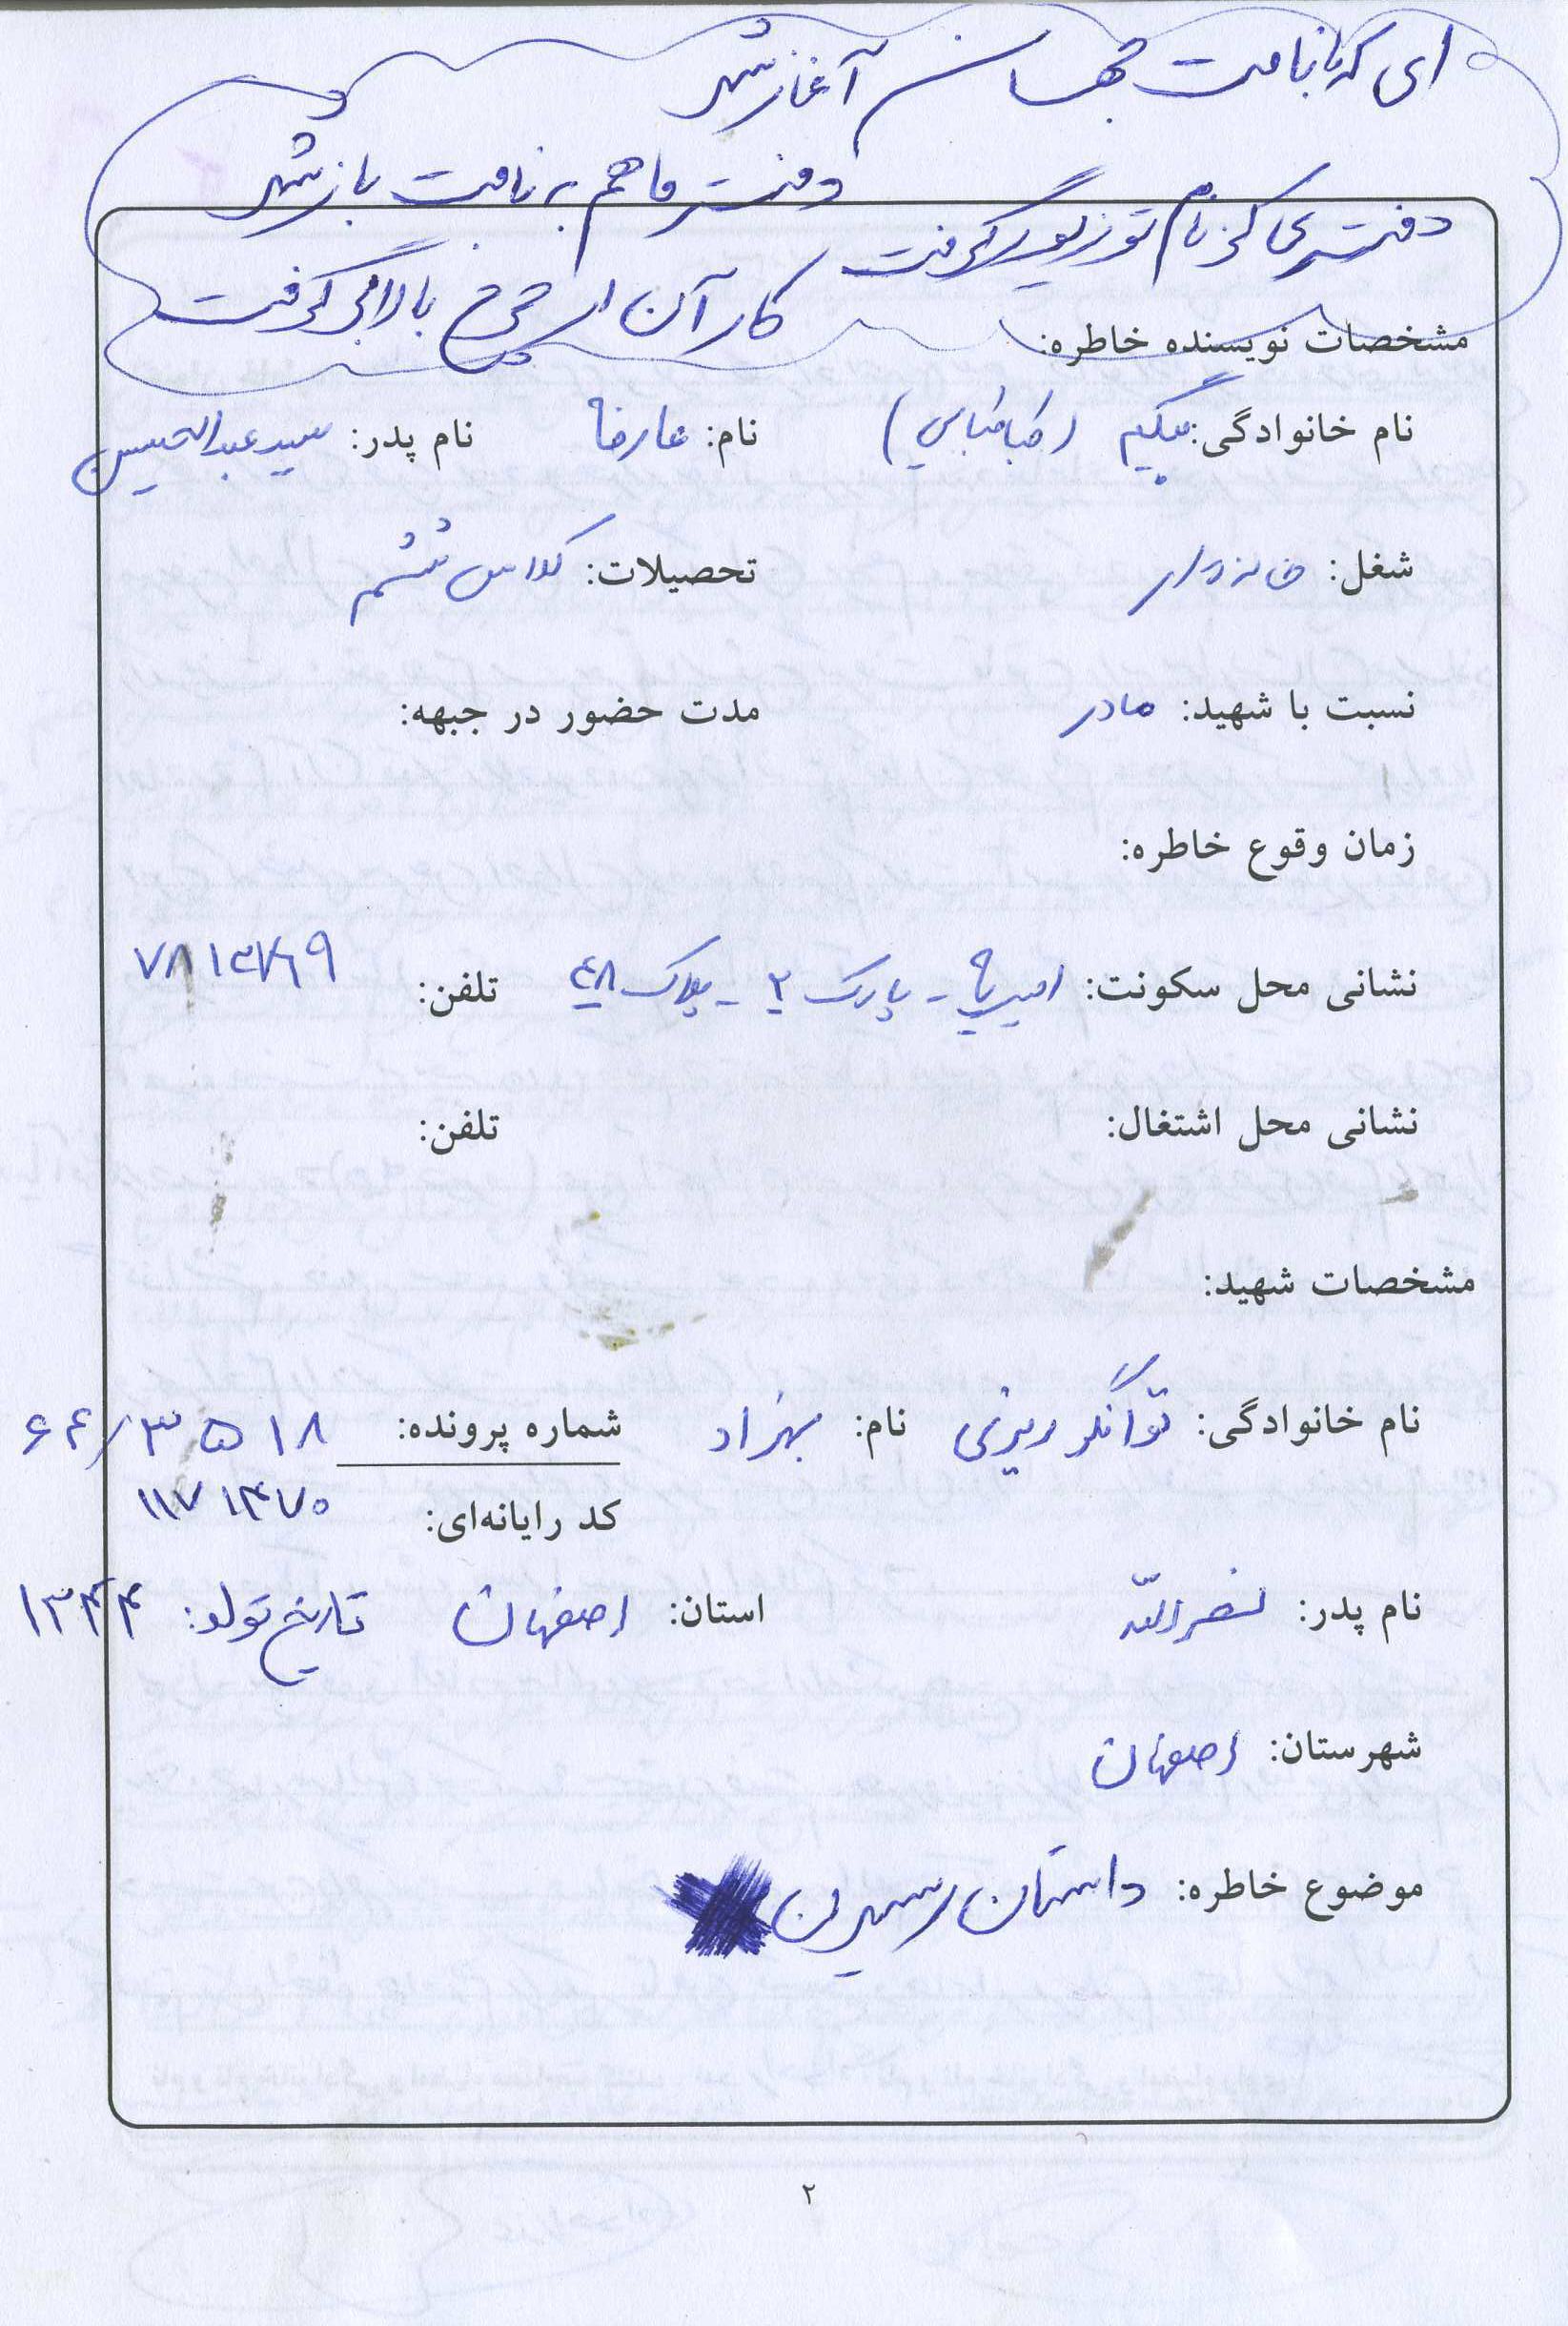 ای که با نامت جهان آغاز شد
دفتر ما هم به نامت باز شد
دفتری کز نام تو زیور گرفت
کار آن از چرخ بالاتر گرفت
مشخصات نویسنده خاطره:
نام خانوادگی: (طباطبایی) نام: نام پدر: سید عبدالحسین
شغل: خانه دار تحصیلات: کلاس ششم
نسبت با شهید: مادر مدت حضور در جبهه:
زمان وقوع خاطره:
نشانی محل سکونت: امیریه - پارک ۲ - پلاک ۴۸ تلفن:
نشانی محل اشتغال: تلفن:
مشخصات شهید:
نام خانوادگی: توانگر ریزی نام: بهزاد شماره پرونده: ۶۴/۳۵۱۸
کد رایانه‌ای: ۱۱۷۱۴۷۰
نام پدر: نصرالله استان: اصفهان تاریخ تولد: ۱۳۴۴
شهرستان: اصفهان
موضوع خاطره: داستان رسیدن
۲